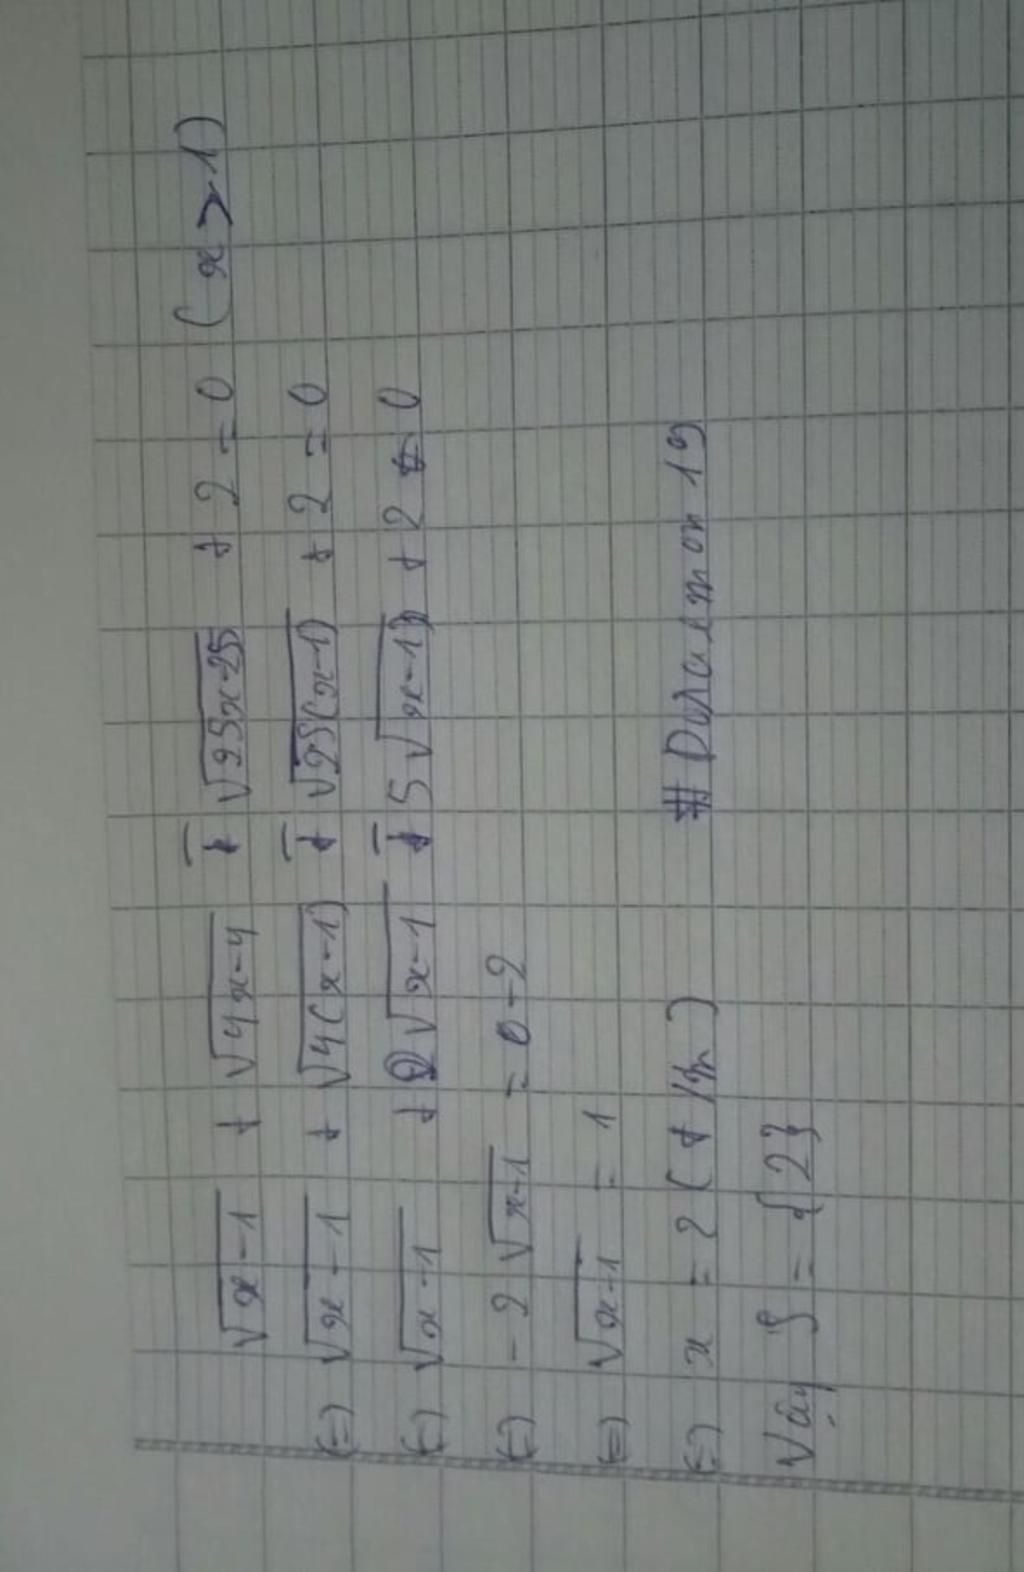 √(x-1) + √(4x-4) - √(25x-25) + 2 = 0 (x ≥ 1)
(=) √(x-1) + √(4(x-1)) - √(25(x-1)) + 2 = 0
(=) √(x-1) + 2√(x-1) - 5√(x-1) + 2 = 0
(=) -2√(x-1) = 0-2
(=) √(x-1) = 1
(=) x = 2 (t/m)
# Doraemon 19
Vậy S = {2}